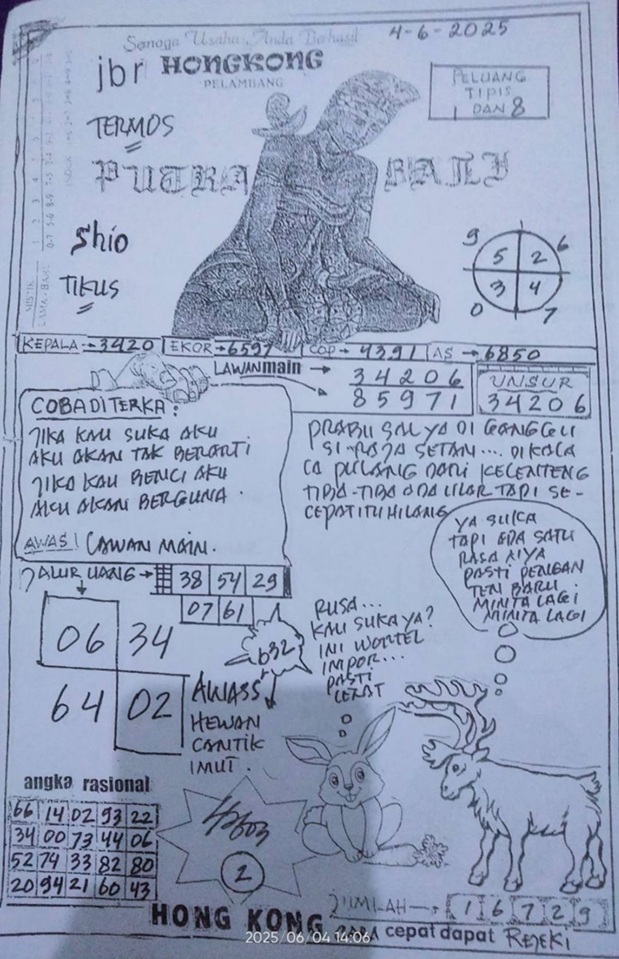 Semoga Usaha Anda Berhasil
4-6-2025
jbr HONGKONG
PELAMBANG
PELUANG
TIPIS
1 DAN 8
TERMOS
PUTRA BALI
Shio
TIKUS
9 1 6
5 2
3 4
0 7
KEPALA → 3420 EKOR → 6597 COP → 4391 AS → 6850
LAWAN main →
34206
85971
UNSUR
34206
COBA DITERKA :
JIKA KAU SUKA AKU
AKU AKAN TAK BERARTI
JIKA KAU BENCI AKU
AKU AKAN BERGUNA.
AWAS! LAWAN MAIN.
PRABU SALYA DI GANGGU
SI RAJA SETAN.... DIKALA
CA PULANG DARI KELENTENG
TIBA-TIBA ADA ULAR TAPI SE-
CEPAT ITU HILANG
YA SUKA
TAPI ADA SATU
RASA NYA
PASTI DENGAN
MINTA LAGI
MINTA LAGI
JALUR UANG → 38 54 29
07 61
06 34
64 02
632
RUSA...
KAU SUKA YA?
INI WORTEL
IMPOR...
PASTI
LEZAT
AWASS
HEWAN
CANTIK
IMUT.
angka rasional
66 14 02 93 22
34 00 73 44 06
52 74 33 82 80
20 94 21 60 43
2
JUMLAH → 1 6 7 2 9
HONG KONG cepat dapat REJEKI
2025/06/04 14:06